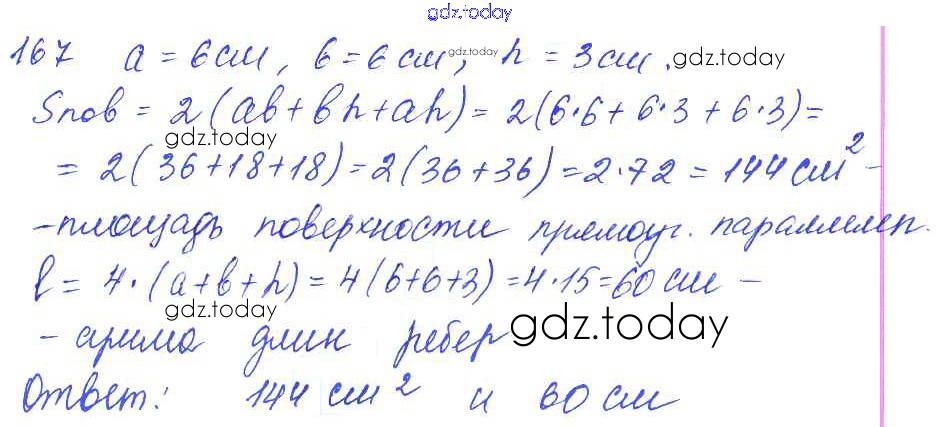 gdz.today
167 a = 6 см, b = 6 см, h = 3 см. gdz.today gdz.today
Sпов = 2(ab + bh + ah) = 2(6·6 + 6·3 + 6·3) =
gdz.today
= 2(36 + 18 + 18) = 2(36 + 36) = 2·72 = 144 см² –
– площадь поверхности прямоуг. параллелеп.
l = 4·(a + b + h) = 4(6+6+3) = 4·15 = 60 см –
gdz.today
– сумма длин ребер gdz.today
Ответ: 144 см² и 60 см